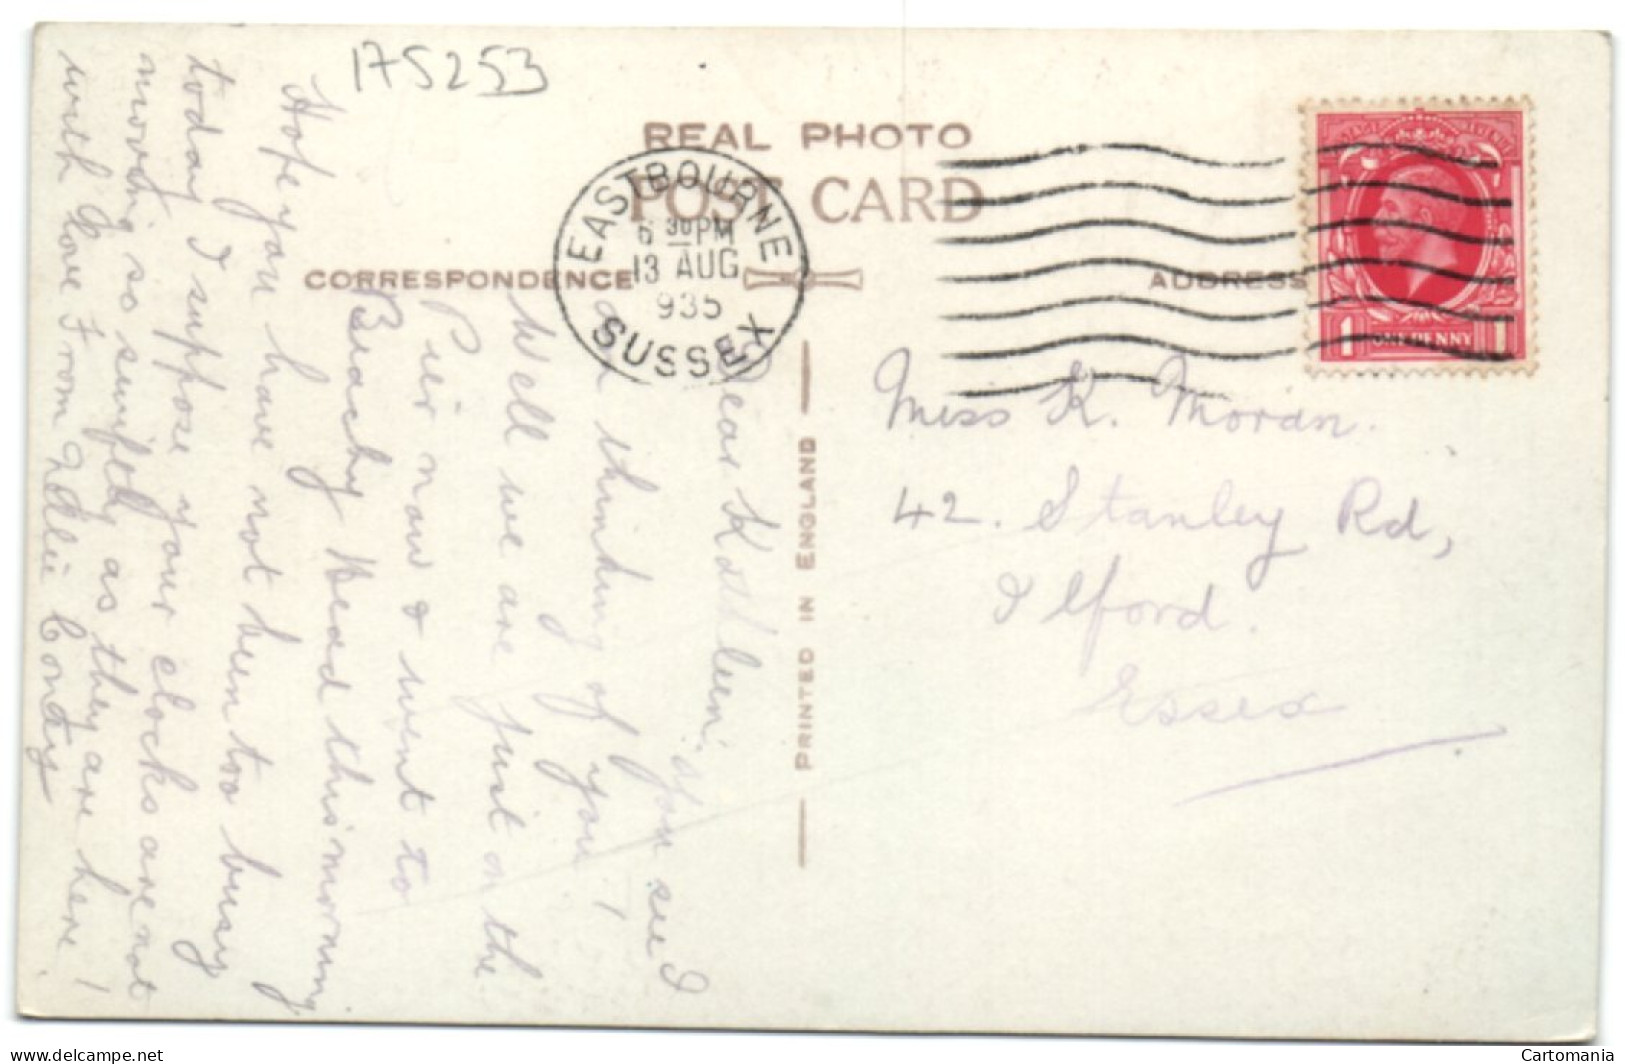 175253
REAL PHOTO
POST CARD
CORRESPONDENCE
ADDRESS
EASTBOURNE
6 30 PM
13 AUG
935
SUSSEX
1 ONE PENNY 1
PRINTED IN ENGLAND
Dear Kathleen,
You see I
am thinking of you!
Well we are just on the
Pier now & went to
Beachy Head this morning
Hope you have not been too busy
today I suppose your clocks are not
moving so swiftly as they are here!
with love From Nellie Condy
Miss K. Moran.
42. Stanley Rd,
Ilford.
Essex
delcampe.net
Cartomania